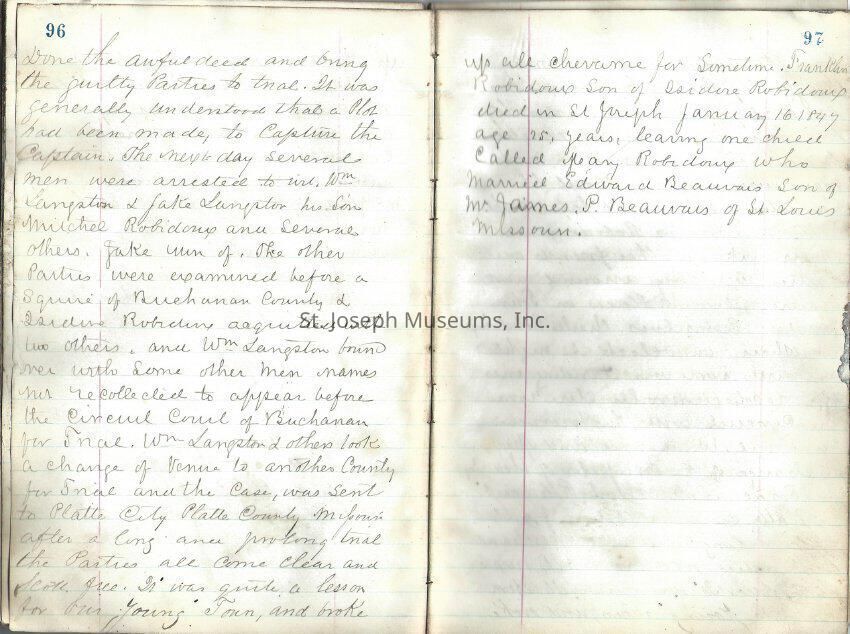 96
Done the awful deed and bring
the guilty Parties to trial. It was
generally understood that a Plot
had been made, to Capture the
Captain. The next day several
men were arrested to wit. Wm
Langston & Jake Langston his Son
Mitchel Robidoux and Several
others. Jake run of. The other
Parties were examined before a
Squire of Buchanan County &
Isidore Robidoux
two others. and Wm Langston bound
over with Some other men names
not recollected to appear before
the Circuit Court of Buchanan
for Trial. Wm Langston & others took
a change of Venue to another County
for Trial and the Case, was Sent
to Platte City Platte County Missouri
after a long and prolong trial
the Parties all come clear and
Scott free. It was quite a lesson
for our Young Town, and broke
97
up all for Sometime. Franklin
Robidoux Son of Isidore Robidoux
died in St Joseph January 16 1847
age 25, years, leaving one child
Called Mary Robidoux who
Married Edward Beauvais Son of
Mr James. P. Beauvais of St. Louis
Missouri.
St. Joseph Museums, Inc.